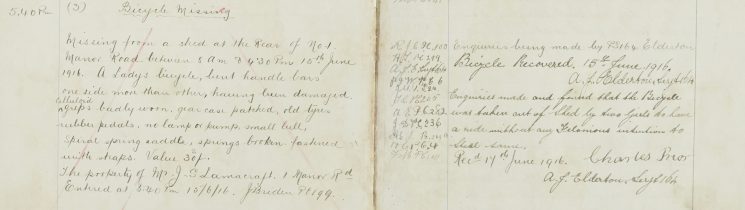 5.40 Pm (3) Bicycle Missing
Missing from a shed at the Rear of No 1
Manor Road between 8 am & 4.30 Pm 15th June
1916. A Lady's bicycle, bent handle bars
one side more than other, having been damaged
celluloid
grips badly worn, gear case patched, old tyres
rubber pedals, no lamp or pump, small bell,
Spiral spring saddle, springs broken fastened
with straps. Value 30/-
The property of Mr J. G. Lamacraft. 1 Manor Rd
Entered at 5.40 Pm 15/6/16. J Breden Pc 299.
Enquiries being made by PS 164 Elderton
Bicycle Recovered, 15th June, 1916.
A. J. Elderton, Sergt 164
Enquiries made and found that the Bicycle
was taken out of shed by two Girls to have
a ride without any Felonious intention to
steal same.
Recd 17th June 1916. Charles Prior
A. J. Elderton, Sergt 164